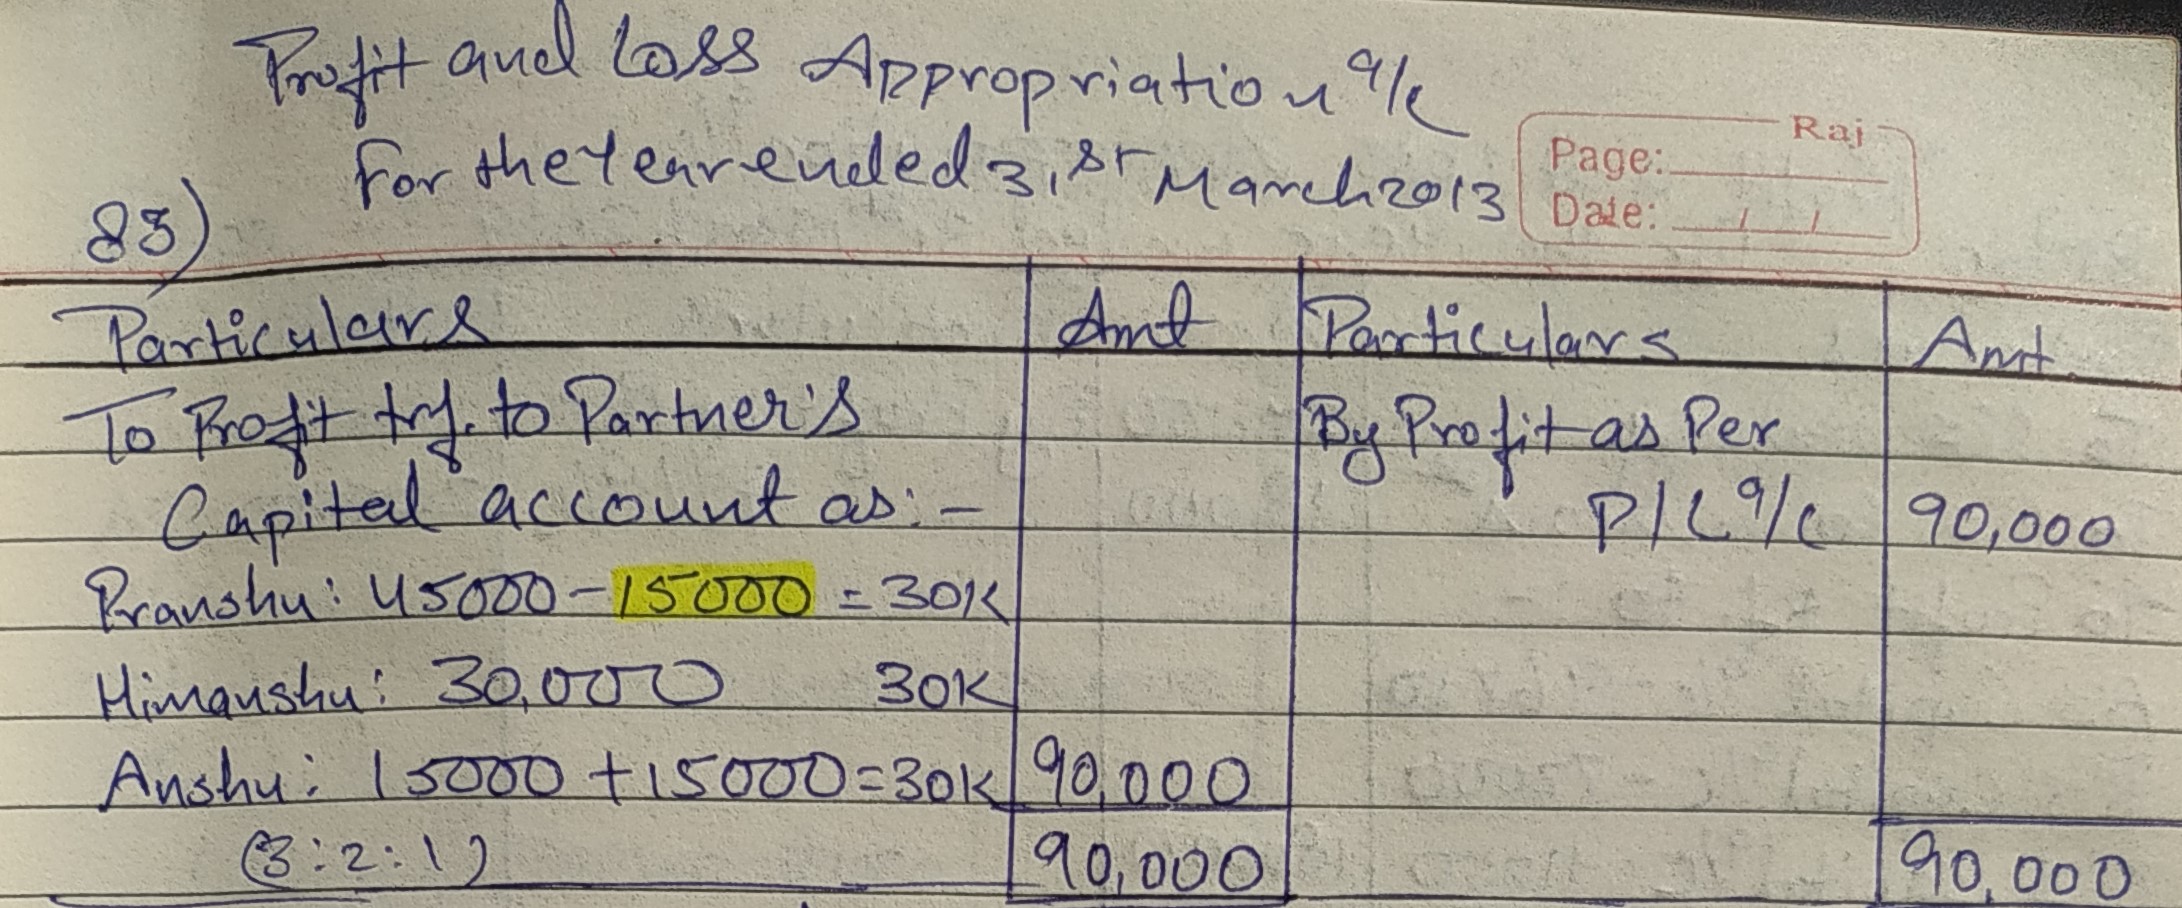 Profit and Loss Appropriation a/c
For the Year ended 31st March 2013
Raj
Page:
Date: / /
83)
Particulars Amt Particulars Amt.
To Profit trf. to Partner's By Profit as Per
Capital account as:- P/L a/c 90,000
Pranshu: 45000 - 15000 = 30K
Himanshu: 30,000 30K
Anshu: 15000 + 15000 = 30K 90,000
(3:2:1) 90,000 90,000